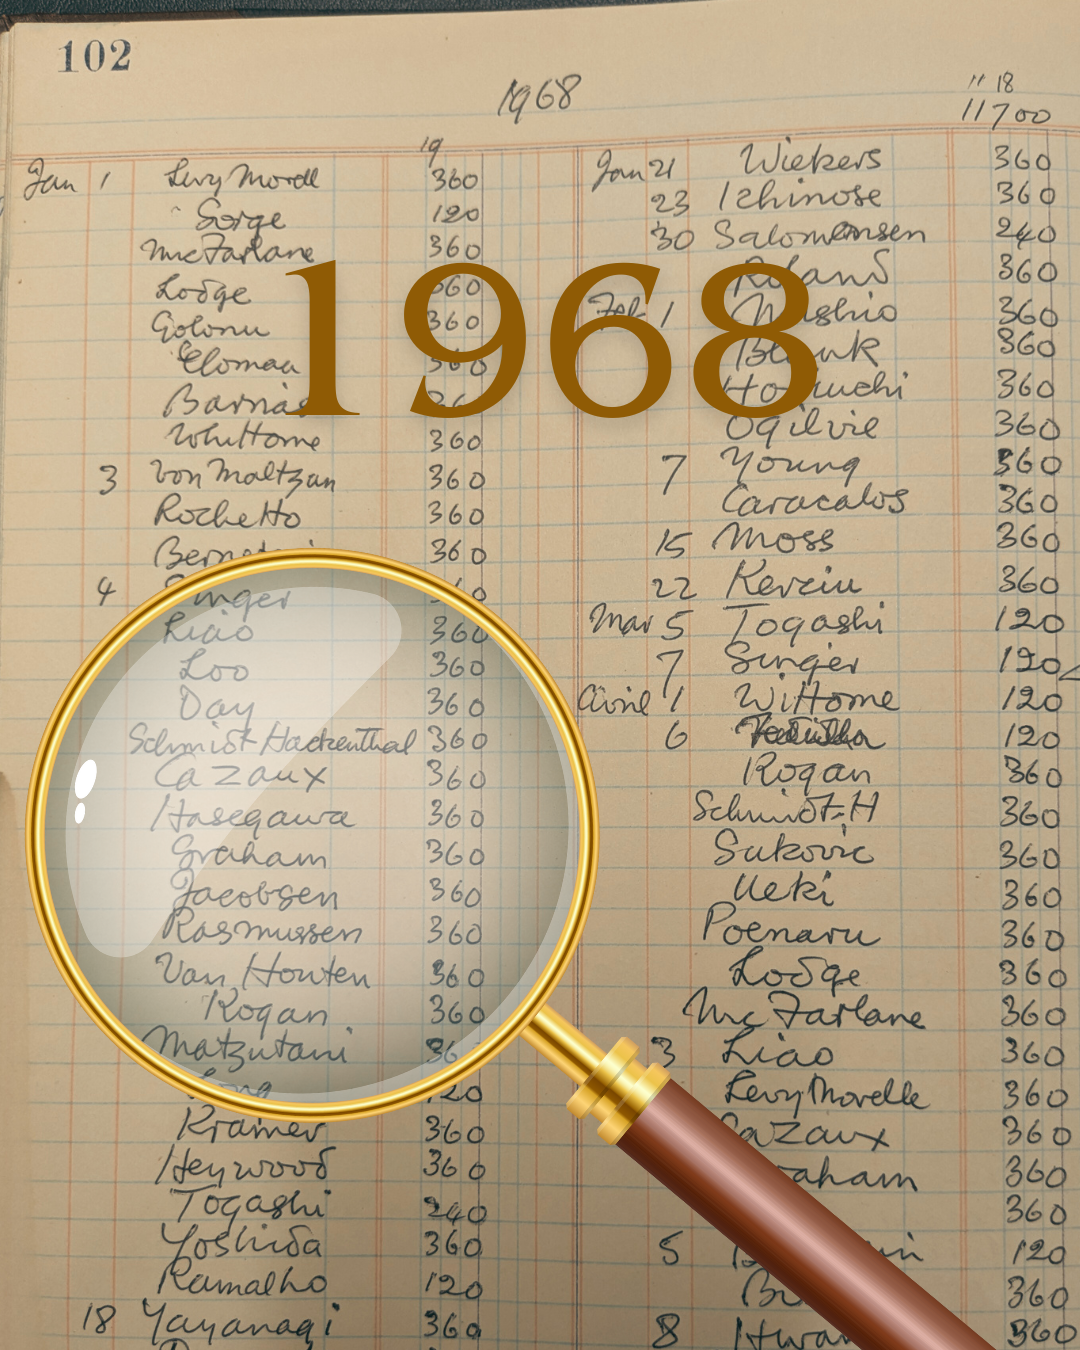 102
1968
" 18
11700
19
Jan 1 Levy Morell 360
Sorge 120
McFarlane 360
Lodge 360
Golonu 360
Elomaa 360
Barnas 36
Whittome 360
3 Von Maltzan 360
Rochetto 360
360
4 inger 60
Liao 360
Loo 360
Day 360
Schmidt-Hackenthal 360
Cazaux 360
Hasegawa 360
Graham 360
Jacobsen 360
Rasmussen 360
Van Houten 360
Rogan 360
Matzutani 36
Long 120
Kramer 360
Heywood 360
Togashi 240
Yoshida 360
Ramalho 120
18 Yayanagi 360
1968
Jan 21 Wiekers 360
23 Ichinose 360
30 Salomonsen 240
Roland 360
Feb 1 Mashio 360
Blank 360
Horiuchi 360
Ogilvie 360
7 Young 360
Caracalos 360
15 Moss 360
22 Kerciu 360
Mar 5 Togashi 120
7 Singer 120
April 1 Wittome 120
6 120
Rogan 360
Schmidt-H 360
Sukovic 360
Ueki 360
Poenaru 360
Lodge 360
McFarlane 360
3 Liao 360
Levy Morelle 360
Cazaux 360
raham 360
360
5 120
360
8 Hwan 360